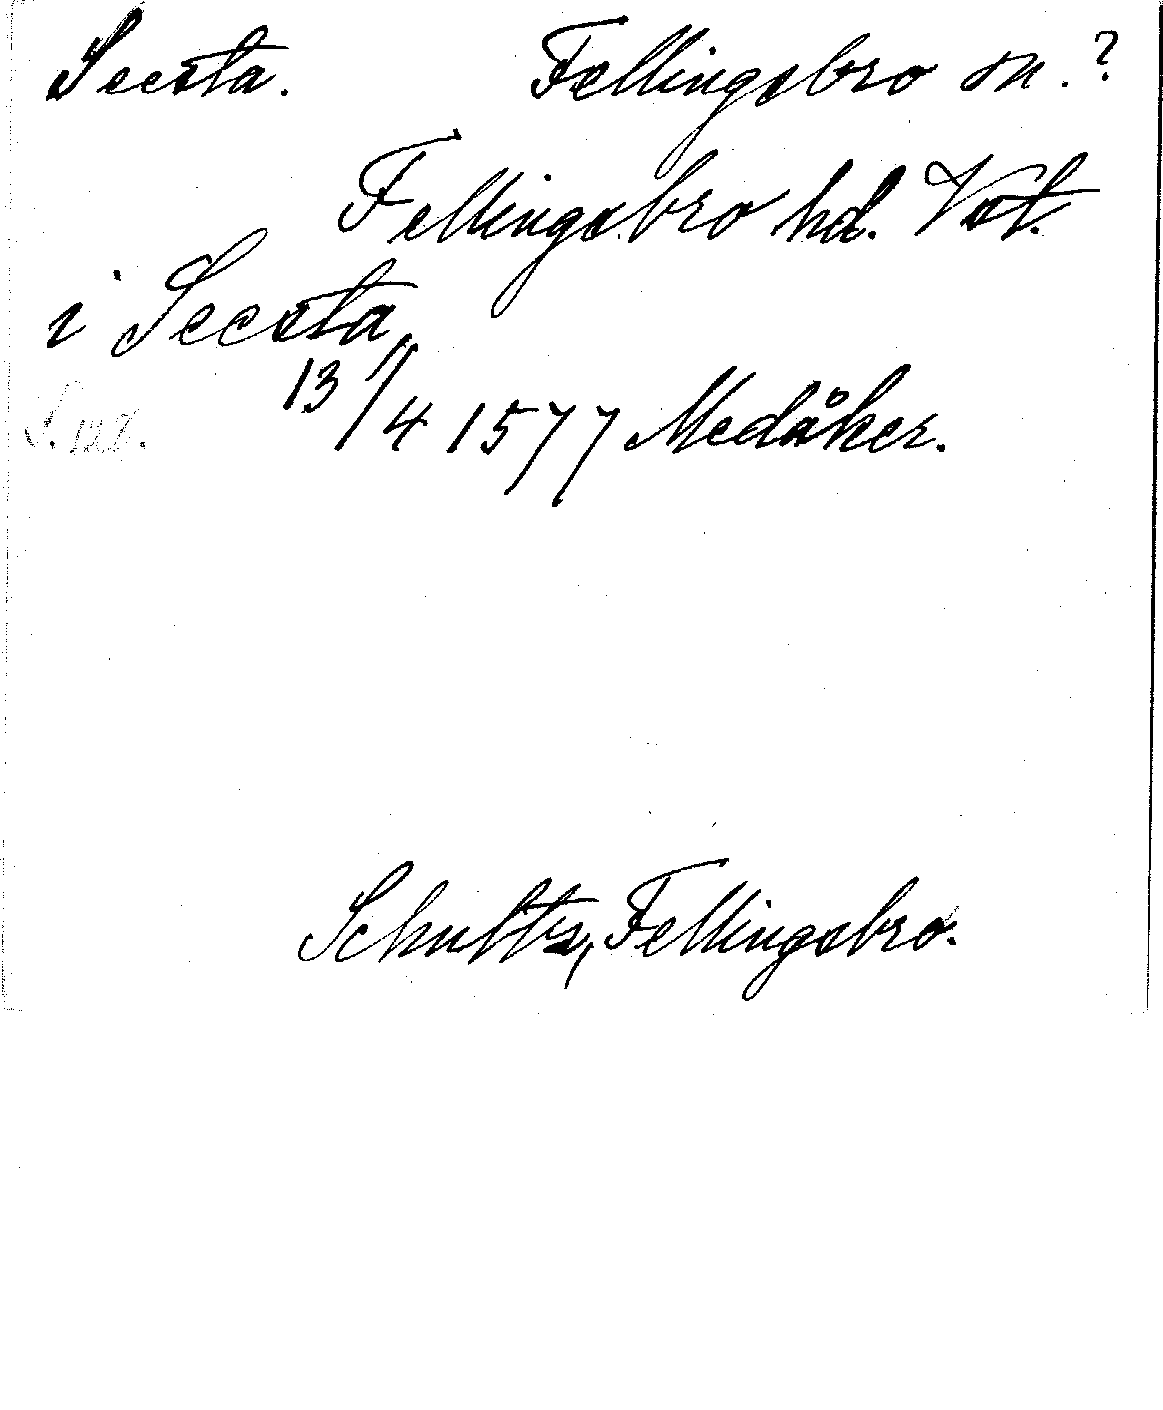 Seesta. Fellingsbro sn.?
Fellingsbro hd. Vstm.
i Seesta
13/4 1577 Medåker.
S. 127.
Schultz, Fellingsbro.